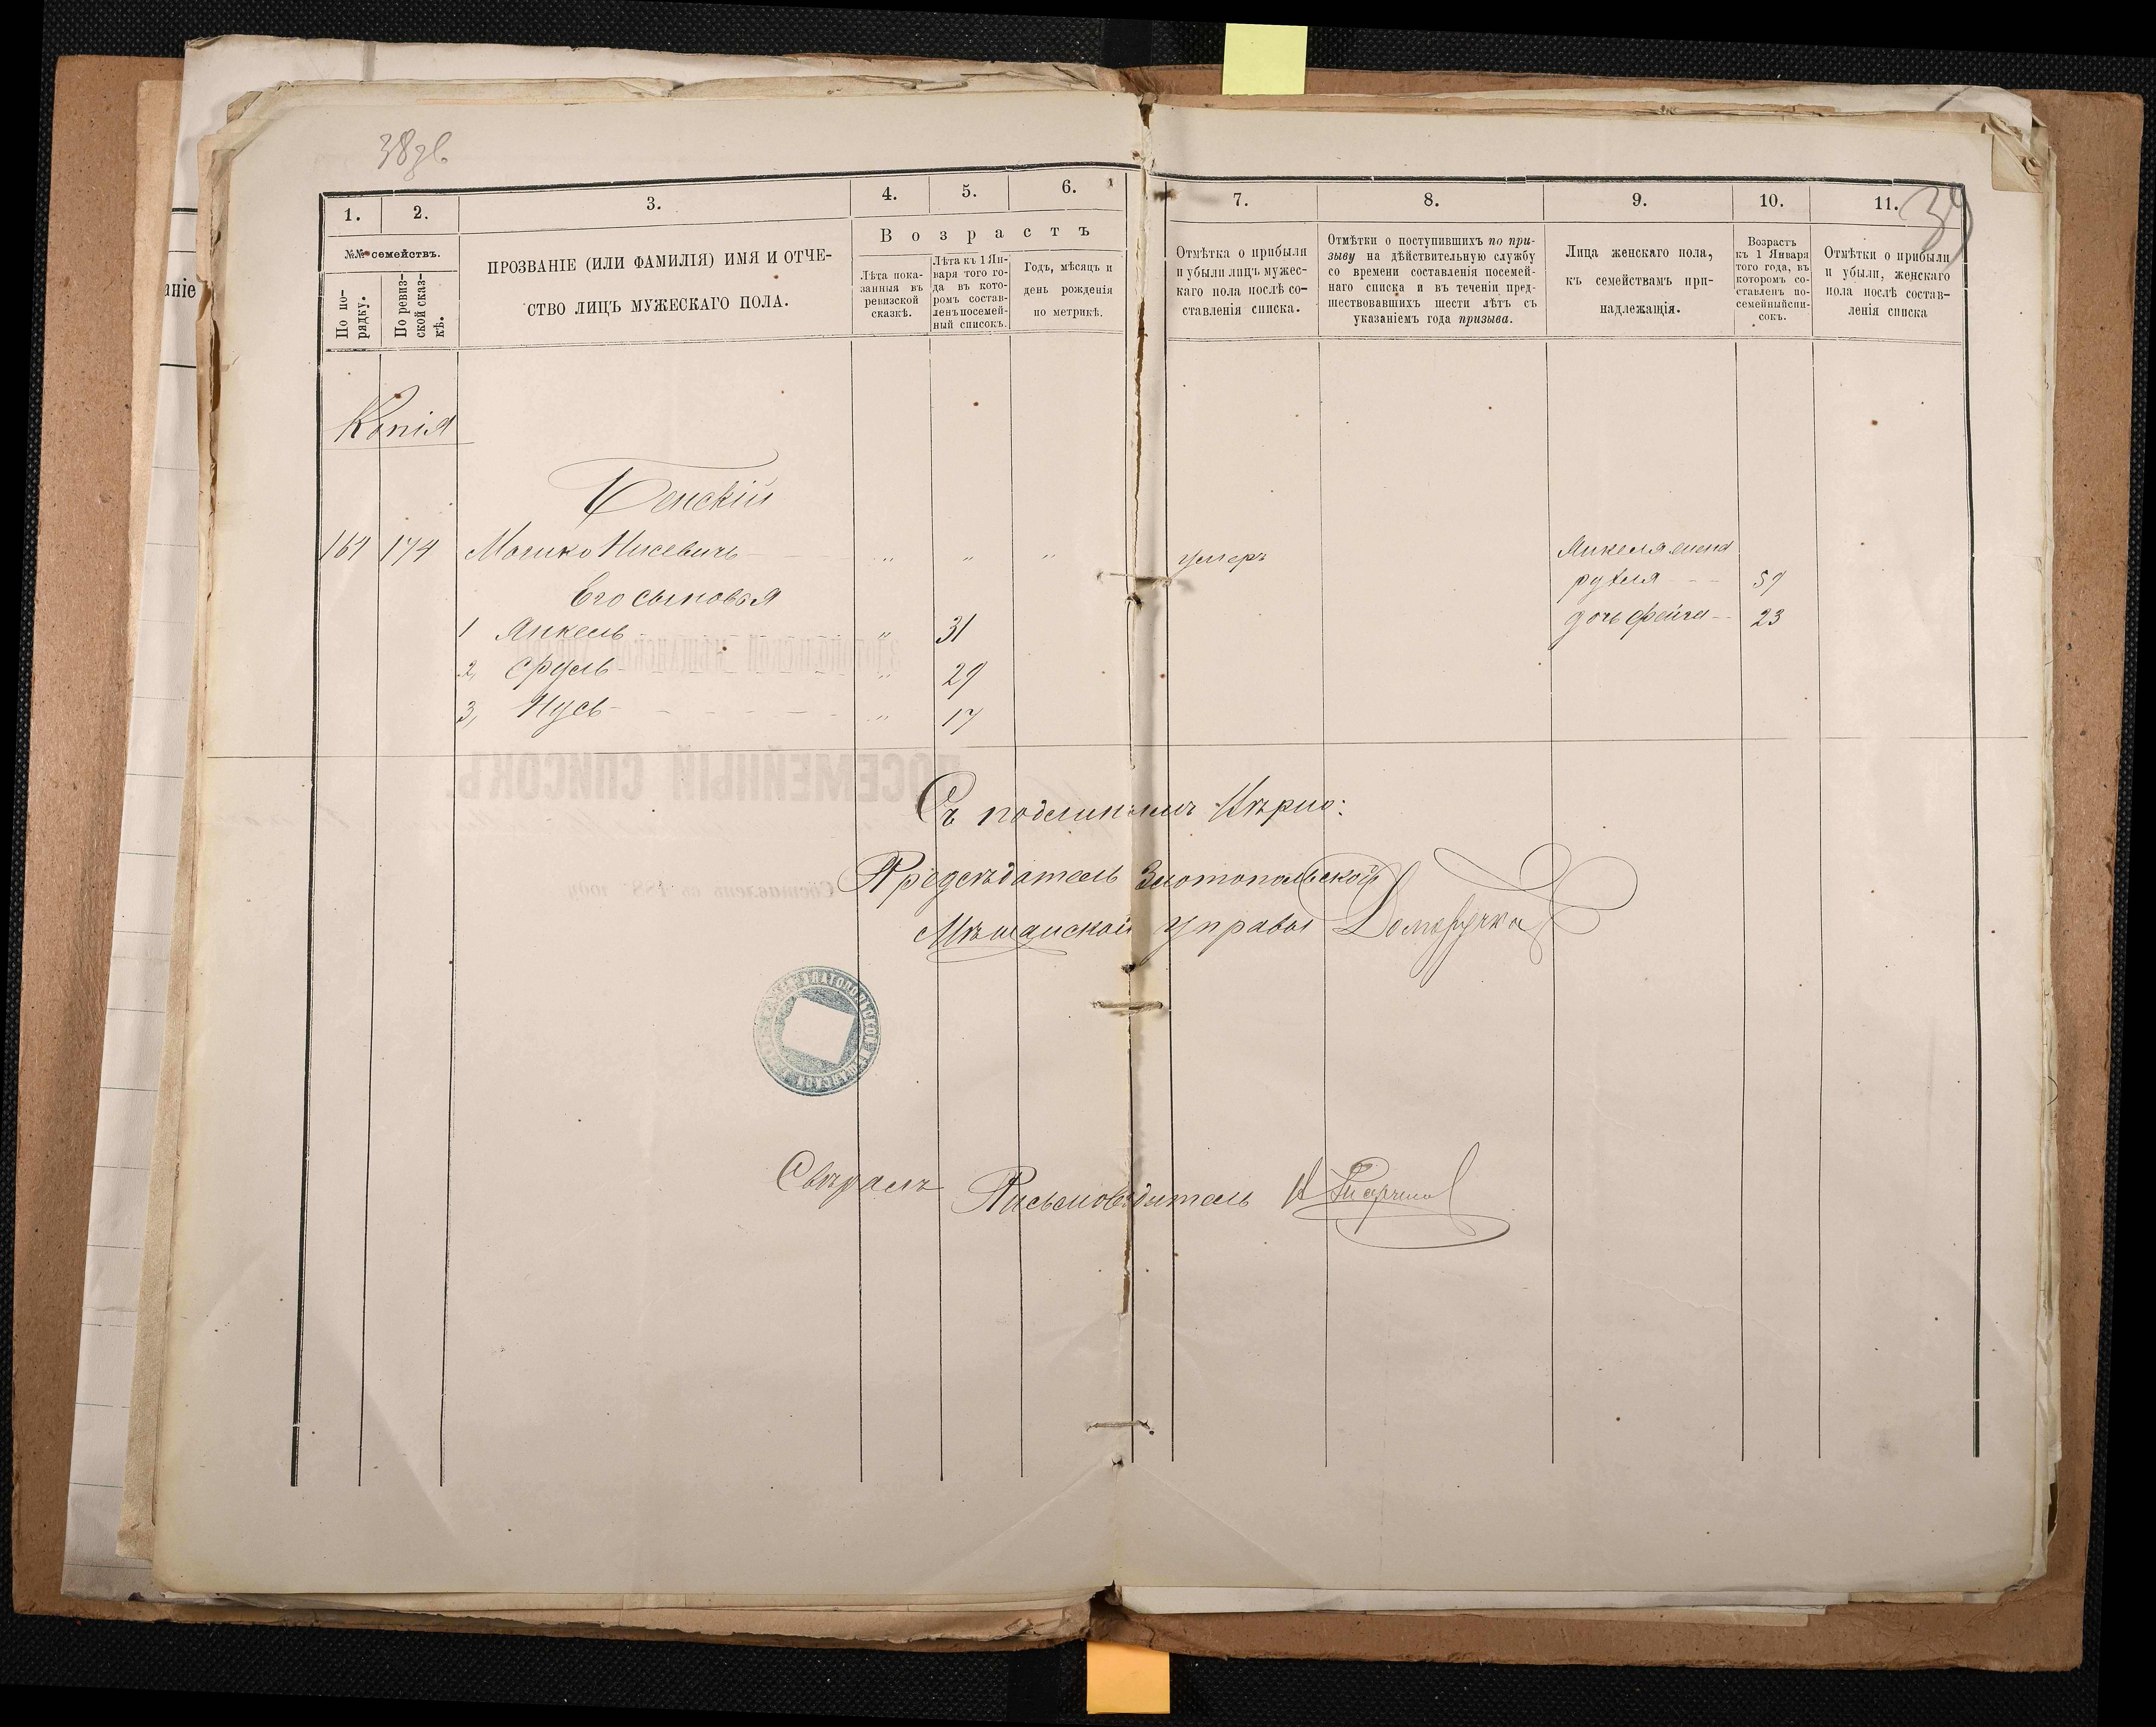 38зв.
39
1.
2.
3.
4.
5.
6.
7.
8.
9.
10.
11.
№№ семействъ.
По по-
рядку.
По ревиз-
ской сказ-
кѣ.
ПРОЗВАНІЕ (ИЛИ ФАМИЛІЯ) ИМЯ И ОТЧЕ-
СТВО ЛИЦЪ МУЖЕСКАГО ПОЛА.
Возрастъ
Лѣта пока-
занныя въ
ревизской
сказкѣ.
Лѣта къ 1 Ян-
варя того го-
да въ кото-
ромъ состав-
ленъ посемей-
ный списокъ.
Годъ, мѣсяцъ и
день рожденія
по метрикѣ.
Отмѣтка о прибыли
и убыли лицъ мужес-
каго пола послѣ со-
ставленія списка.
Отмѣтки о поступившихъ по при-
зыву на дѣйствительную службу
со времени составленія посемей-
наго списка и въ теченіи пред-
шествовавшихъ шести лѣтъ съ
указаніемъ года призыва.
Лица женскаго пола,
къ семействамъ при-
надлежащія.
Возрастъ
къ 1 Января
того года, въ
которомъ со-
ставленъ по-
семейный спи-
сокъ.
Отмѣтки о прибыли
и убыли, женскаго
пола послѣ состав-
ленія списка
аніе
Копія
Бенскій
164 174 Мошко Иосевичъ умеръ Янкеля жена
рухля 59
Его сыновья
1 Янкель 31 дочь фейга 23
2, Сруль 29
3, Нусь 17
Съ подлиннымъ вѣрно:
Предсѣдатель Златопольской
Мѣщанской Управы
Свѣрялъ Письмоводитель